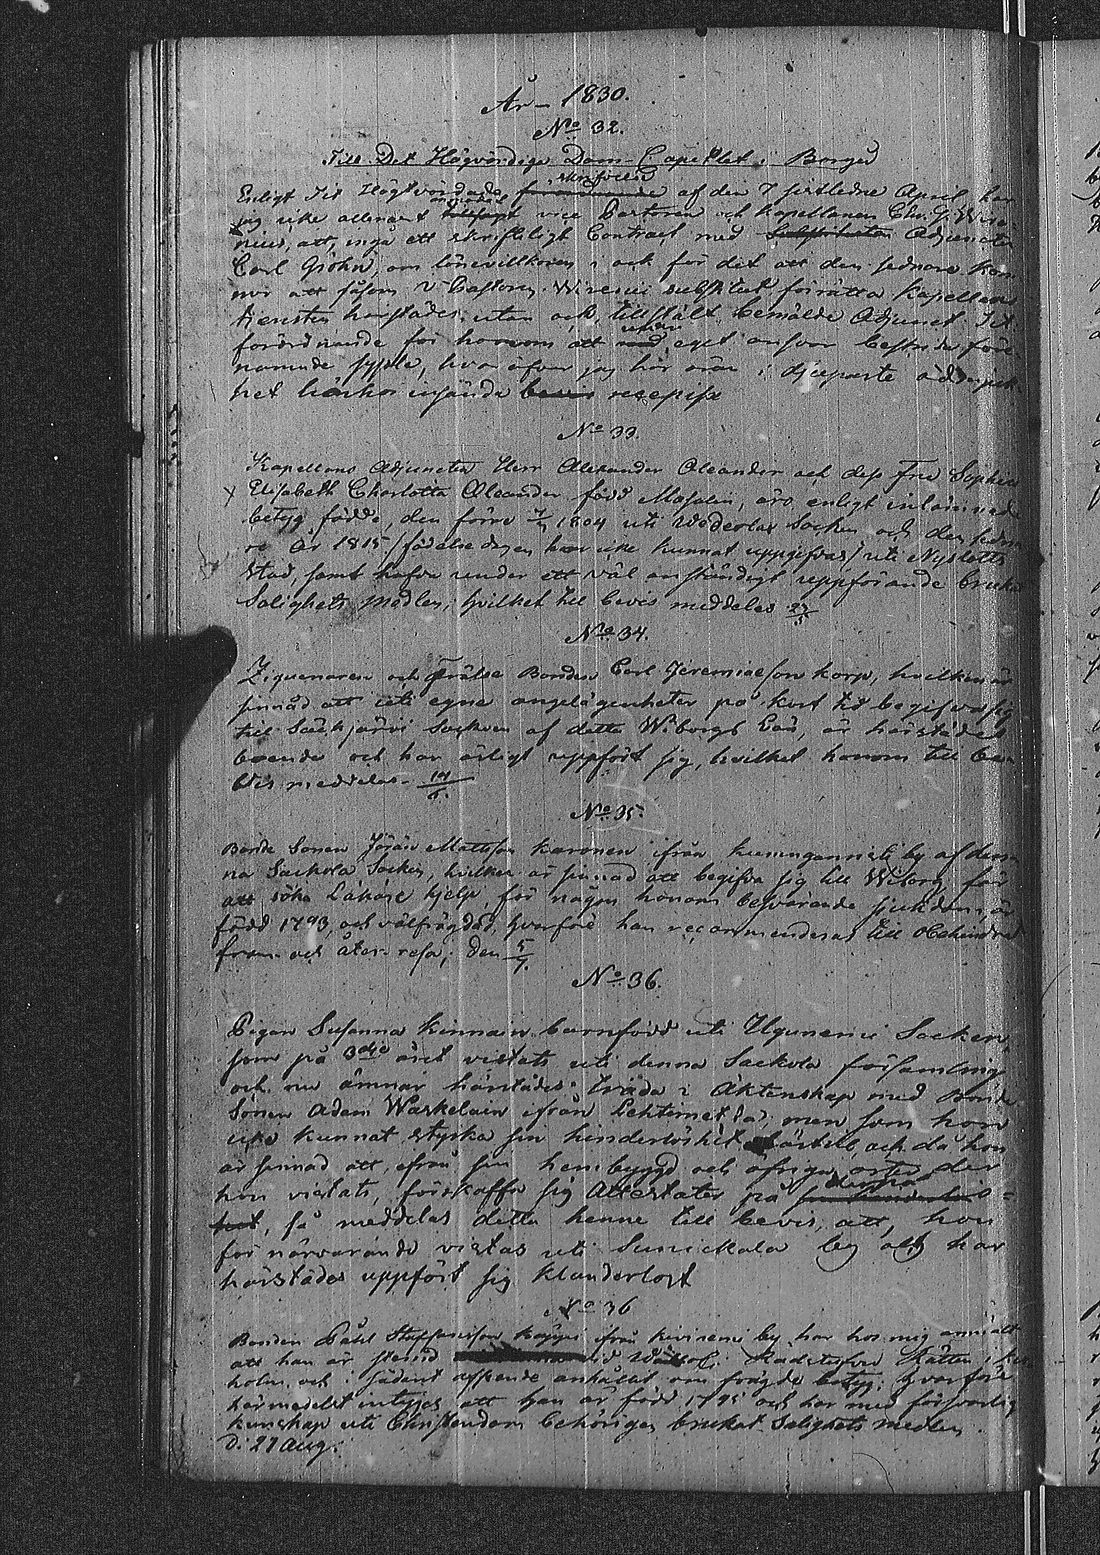 År 1830.
No 32.
Till Det Högvördiga Dom-Capitlet i Borgå
skrifvelse
Enligt Det Högtvördade förordnande af den 7 sistledne April har
anmodat
jag icke allenast vice Pastoren och Kapellanen Chr. J. Wire
nius, att, ingå ett skrifteligt Contract med Adjuncten
Carl Grohn, om lönevillkoren i och för det att den sednare kom
mer att såsom V. Pastorn Wirenii substitut förrätta Kapellans
tjensten härstädes, utan ock, tillstält bemälde Adjunct Dit
under
förordnande för honom att med eget ansvar bestrida före
namnde syssla, hvaröfver jag här
tet härhos insända bevis recepisse
No 33.
Kapellans Adjuncten Herr Alexander Aleander och dess Fru Sophia
x Elisabeth Charlotta Aleander född Masalin, äro enligt inlämnade
betyg födde, den förre 1804 uti Wederlax Socken och den sedna
re år 1815 /födelse dagen har icke kunnat uppgifvas/ uti Nyslotts
stad, samt hafva under ett väl anständigt uppförande brukat
Salighets medlen, hvilket till bevis meddelas 27/5
No 34.
Ziguenaren och Frälse Bonden Carl Jeremiaeson Korp, hvilken är
sinnad att uti egne angelägenheter på kort tid begifva sig
till Säkjärvi Socken af detta Wiborgs Län, är härstädes
boende och har ärligt uppfört sig, hvilket honom till be
vis meddelas 14/6.
No 35.
Bonde Sonen Jöran Mattsson Karonen ifrån by af den
na Sackola Socken, hvilken är sinnad att begifva sig till Wiborg för
att söka Läkare hjelp, för någon honom besvärande sjukdom, är
född 1793, och välfrägdad, hvarföre han recommenderas till obehindrad
fram- och åter-resa, den 5/7.
No 36.
Pigan Susanna Kinnain barnfödd uti Socken,
som på 3dje året vistats uti denna Sackola församling
och nu ämnar härstädes träda i Äktenskap med Bonde
Sonen Adam Waskelain ifrån men som hon
icke kunnat styrka sin hinderlöshet härtill, och då hon
är sinnad att, ifrån sin hembyggd och öfriga orter der
denna
hon vistats, förskaffa sig Attestater på sin hinderlös-
het, så meddelas detta henne till bevis, att, hon
för närvarande vistas uti by och har
härstädes uppfört sig klanderlöst
No 36
Bonden Påhl Staffansson Käppi ifrån Kiviniemi by har hos mig anmält
att han är stemd vid Rådstufvu Rätten i Kex
holm och i sådant afseende anhållit om frägde betyg; hvarföre
härmedelst intygas att han är född 1795 och har med försvarlig
kunskap uti Christendom behörigen brukat Salighets medlen.
d. 27 Aug.